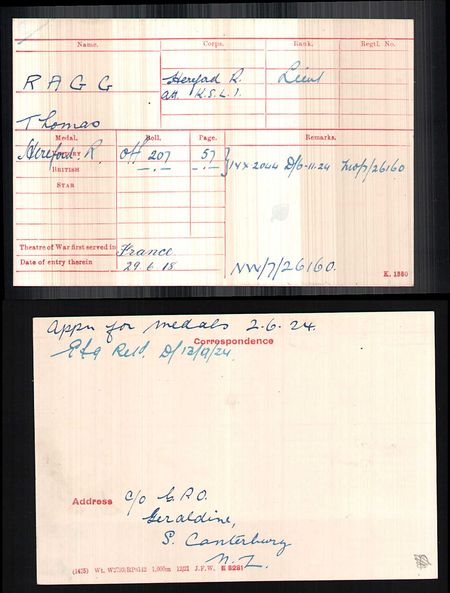 Name. Corps. Rank. Regtl. No.
RAGG Hereford R. Lieut
att. K.S.L.I.
Thomas
Medal. Roll. Page. Remarks.
Hereford. R. Off 207 57 14 x 2044 D/6-11-24 NW/7/26160
VICTORY
BRITISH -..- -..-
STAR
Theatre of War first served in France
Date of entry therein 29.6.18
NW/7/26160.
K. 1380
Appn for medals 2-6-24.
Correspondence
Retd. D/12/9/24
Address c/o G.P.O.
Geraldine,
S. Canterbury
N.Z.
1,000m 12/21 J.F.W. E 8281